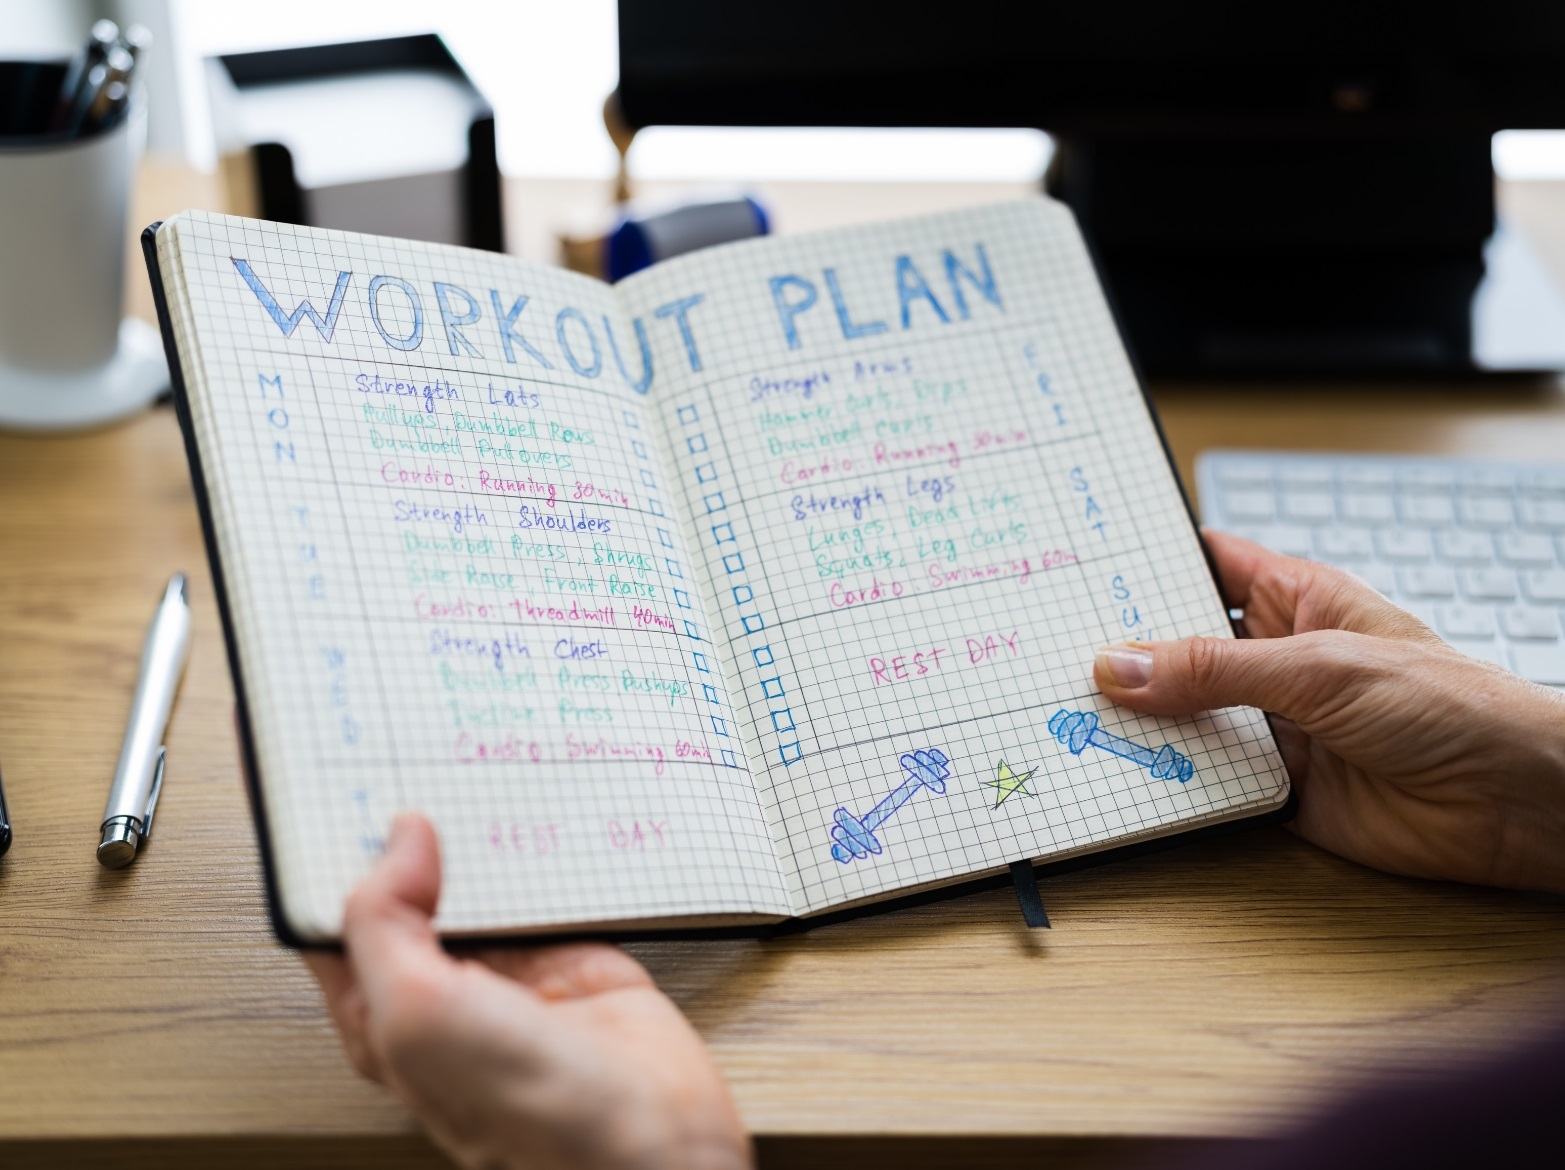 WORKOUT PLAN
MON
Strength Lats
Pullups, Dumbbell Rows
Dumbbell Pullovers
Cardio: Running 30min
TUE
Strength Shoulders
Dumbbell Press, Shrugs
Side Raise, Front Raise
Cardio: Threadmill 40min
WED
Strength Chest
Dumbbell Press Pushups
Incline Press
Cardio: Swimming 60min
REST DAY
FRI
Strength Arms
Hammer Curls, Dips
Dumbbell Curls
Cardio: Running 30min
SAT
Strength Legs
Lunges, Dead Lifts
Squats, Leg Curls
Cardio: Swimming 60m
SU
REST DAY